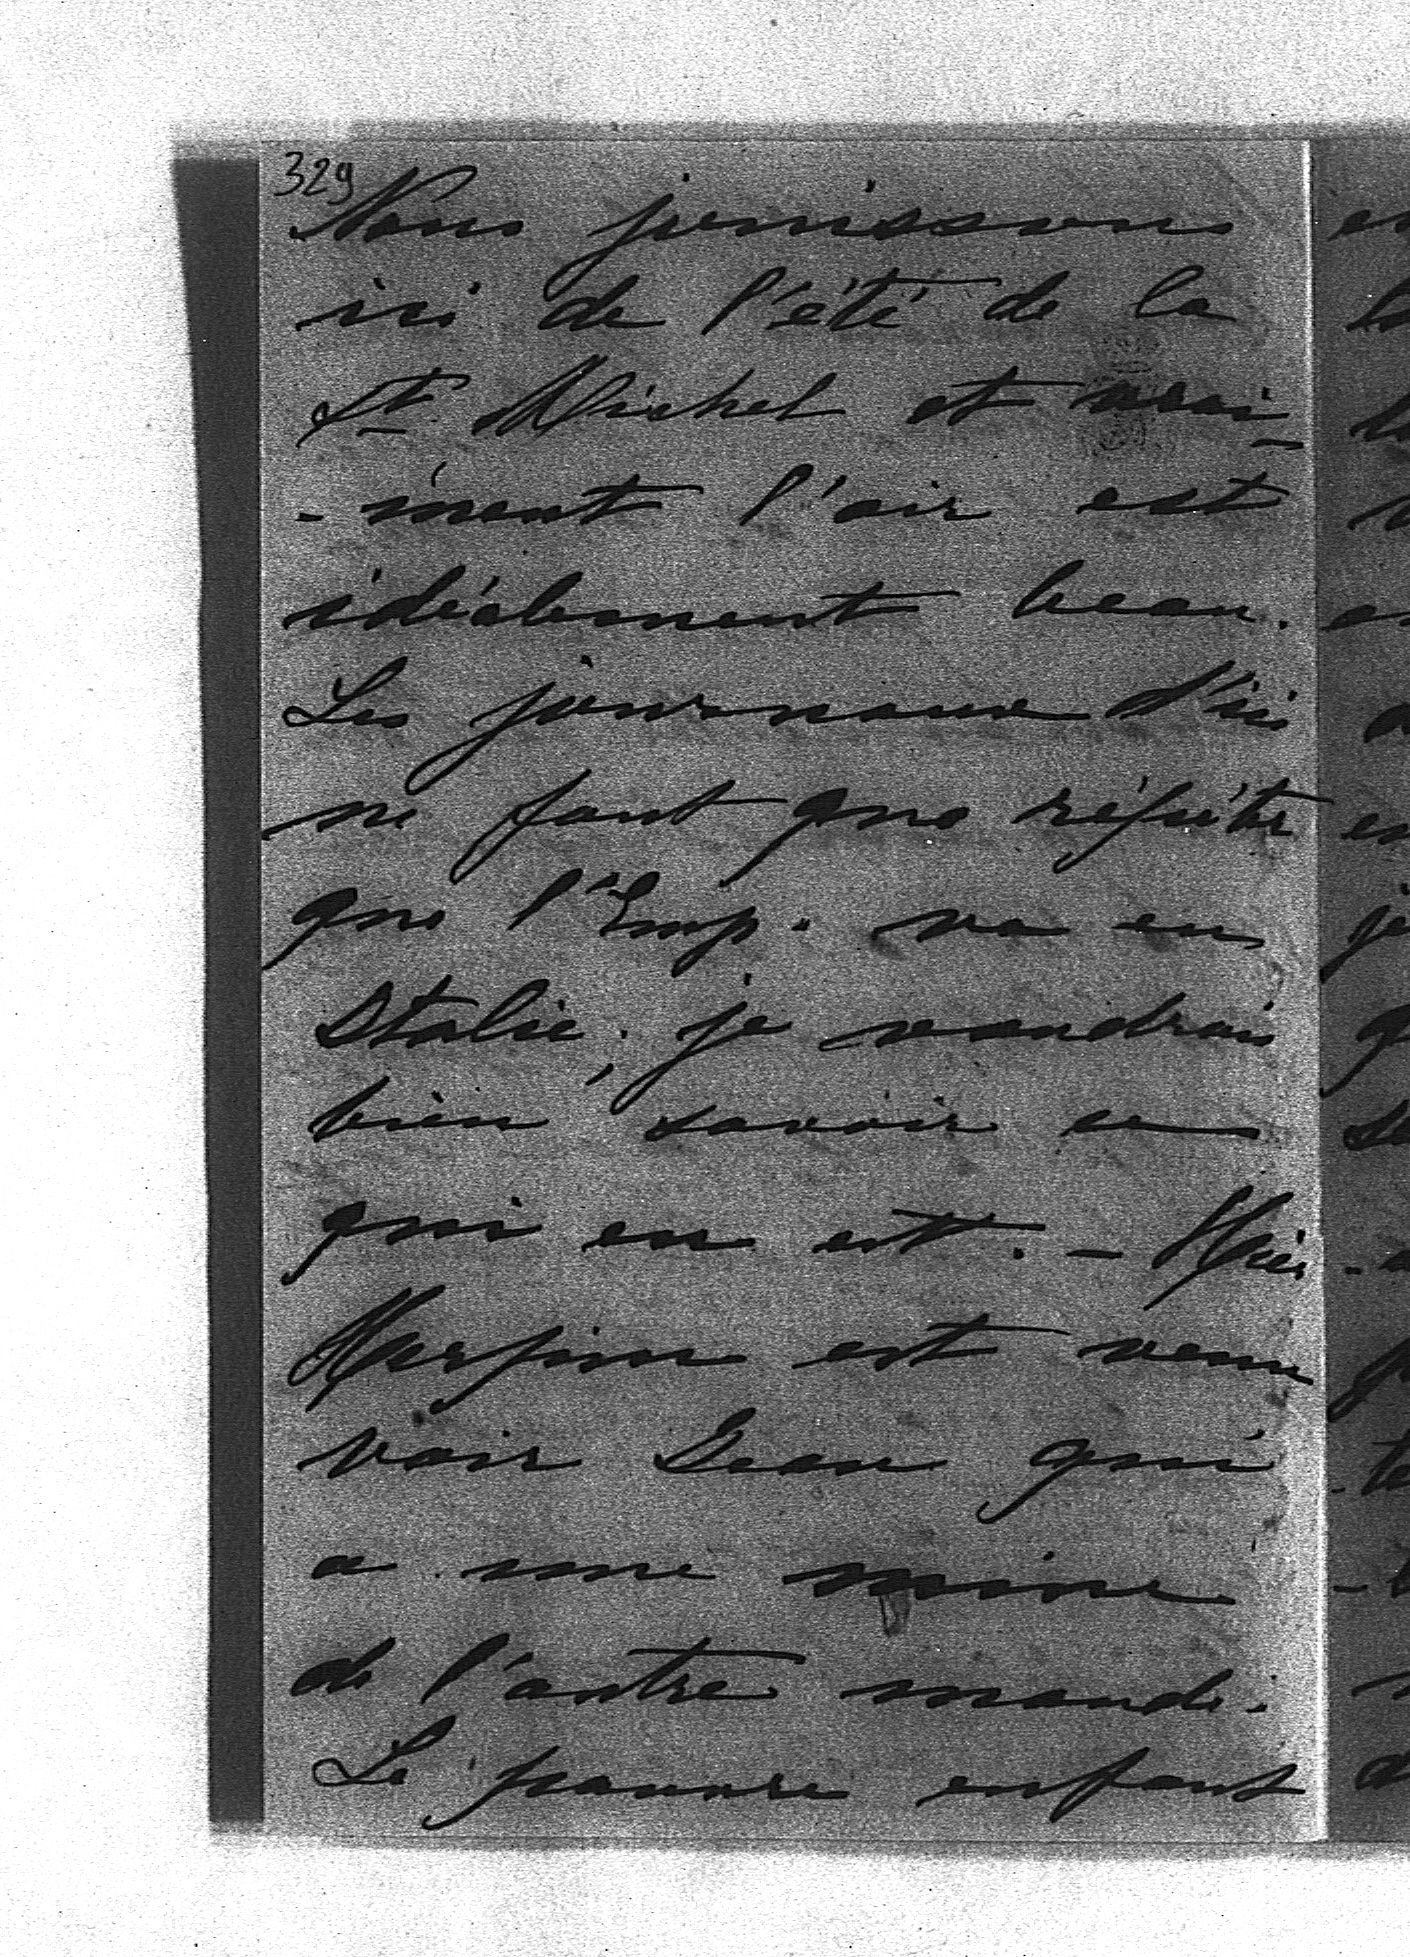 329
Nous jouissons
ici de l'été de la
St Michel et vrai-
-ment l'air est
idéalement beau.
Les journaux d'ici
ne font que répéter
que l'Emp. va en
Italie; je voudrais
bien savoir ce
qui en est. - Hier
est venu
voir Jean qui
a une mine
de l'autre monde.
Le pauvre enfant